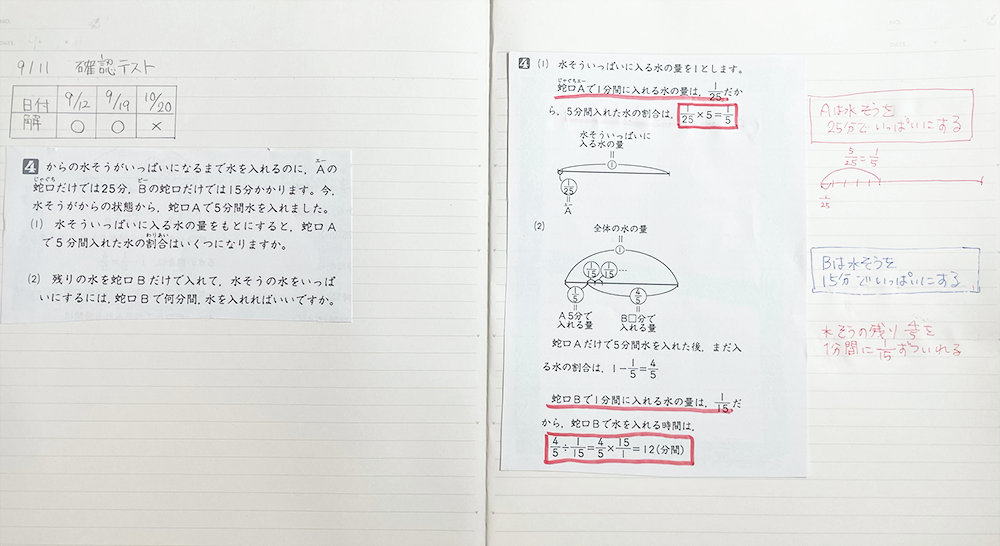 9/11 確認テスト
日付 9/12 9/19 10/20
解 ○ ○ ×
4 からの水そうがいっぱいになるまで水を入れるのに，Aの
蛇口だけでは25分，Bの蛇口だけでは15分かかります。今，
水そうがからの状態から，蛇口Aで5分間水を入れました。
(1) 水そういっぱいに入る水の量をもとにすると，蛇口A
で5分間入れた水の割合はいくつになりますか。
(2) 残りの水を蛇口Bだけで入れて，水そうの水をいっぱ
いにするには，蛇口Bで何分間，水を入れればいいですか。
4 (1) 水そういっぱいに入る水の量を1とします。
蛇口Aで1分間に入れる水の量は，1/25だか
ら，5分間入れた水の割合は，1/25×5=1/5
水そういっぱいに
入る水の量
=
1
1/25
=
A
(2)
全体の水の量
=
1
1/15 1/15 …
1/5 4/5
= =
A5分で B□分で
入れる量 入れる量
蛇口Aだけで5分間水を入れた後，まだ入
る水の割合は，1－1/5=4/5
蛇口Bで1分間に入れる水の量は，1/15だ
から，蛇口Bで水を入れる時間は，
4/5÷1/15=4/5×15/1=12(分間)
Aは水そうを
25分でいっぱいにする
5/25=1/5
1/25
Bは水そうを
15分でいっぱいにする
水そうの残り4/5を
1分間に1/15ずついれる